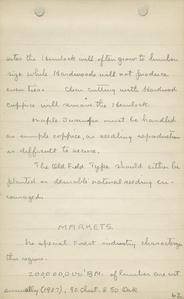 sites the Hemlock will often grow to lumber
size while Hardwoods will not produce
even ties. Clear cutting with Hardwood
coppice will remove the Hemlock.
Maple Swamps must be handled
as simple coppice, as seedling reproduction
is difficult to secure.
The Old Field Type should either be
planted or desirable natural seeding en-
couraged.
MARKETS.
No special forest industry characterizes
this region.
B.M. of lumber are cut
annually (1907), 90 Chest. & 50 Oak
62.